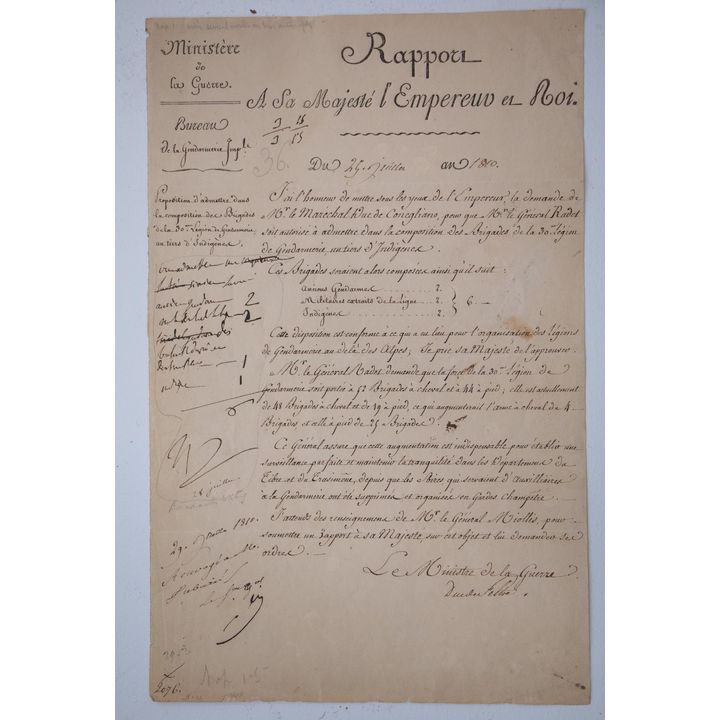 Ministère
de
la Guerre.
Bureau
de la Gendarmerie Imp.le
Rapport
A Sa Majesté l'Empereur et Roi.
3 15
3 15
36.
Du 25 Juillet an 1810.
Proposition d'admettre dans
la composition des Brigades
de la 30e Légion de Gendarmerie
un tiers d'Indigènes.
2
2
1
1
6
28 juillet
29 Juillet 1810.
2076.
J'ai l'honneur de mettre sous les yeux de l'Empereur, la demande de
Mr. le Maréchal Duc de Conegliano, pour que Mr. le Général Radet
soit autorisé à admettre dans la composition des Brigades de la 30e Légion
de Gendarmerie, un tiers d'Indigènes.
Ces Brigades seraient alors composées ainsi qu'il suit :
Anciens Gendarmes ... 2.
Militaires extraits de la ligne ... 2. } 6.
Indigènes ... 2.
Cette disposition est conforme à ce qui a eu lieu pour l'organisation des légions
de Gendarmerie au delà des Alpes; Je prie sa Majesté de l'approuver.
Mr. le Général Radet demande que la force de la 30e Légion de
Gendarmerie soit porté à 52 Brigades à cheval et à 44 à pied; elle est actuellement
de 48 Brigades à cheval et de 19 à pied, ce qui augmenterait l'arme à cheval de 4
Brigades, et celle à pied de 25 Brigades.
Ce Général assure que cette augmentation est indispensable pour établir une
surveillance parfaite et maintenir la tranquilité dans les Départemens du
Tibre et du Trasimène, depuis que les Sbires qui servaient d'auxilliaires
à la Gendarmerie ont été supprimés et organisés en Gardes Champêtre.
J'attends des renseignemens de Mr. le Général Miollis, pour
soumettre un Rapport à sa Majesté, sur cet objet et lui demander ses
ordres.
Le Ministre de la Guerre
Duc de Feltre.